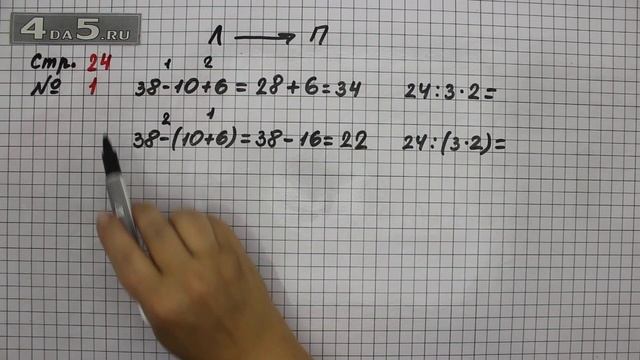 4DA5.RU
Л → П
Стр. 24
№ 1
1 2
38-10+6=28+6=34
24:3·2=
2 1
38-(10+6)=38-16=22
24:(3·2)=